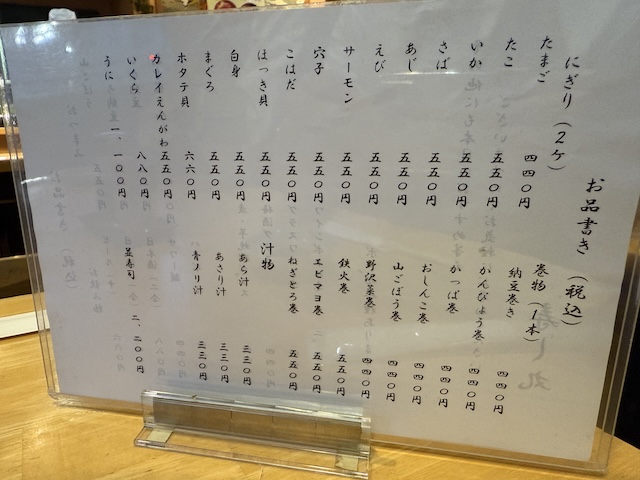 お品書き(税込)
にぎり(2ヶ)
たまご 四四〇円
たこ 五五〇円
いか 五五〇円
さば 五五〇円
あじ 五五〇円
えび 五五〇円
サーモン 五五〇円
穴子 五五〇円
こはだ 五五〇円
ほっき貝 五五〇円
白身 五五〇円
まぐろ 五五〇円
ホタテ貝 六六〇円
カレイえんがわ 五五〇円
いくら 八八〇円
うに 一、一〇〇円
巻物(1本)
納豆巻き 四四〇円
かんぴょう巻 四四〇円
かっぱ巻 四四〇円
おしんこ巻 四四〇円
山ごぼう巻 四四〇円
野沢菜巻 四四〇円
鉄火巻 五五〇円
エビマヨ巻 五五〇円
ねぎとろ巻 五五〇円
汁物
あら汁 三三〇円
あさり汁 三三〇円
青ノリ汁 三三〇円
並寿司 二、二〇〇円